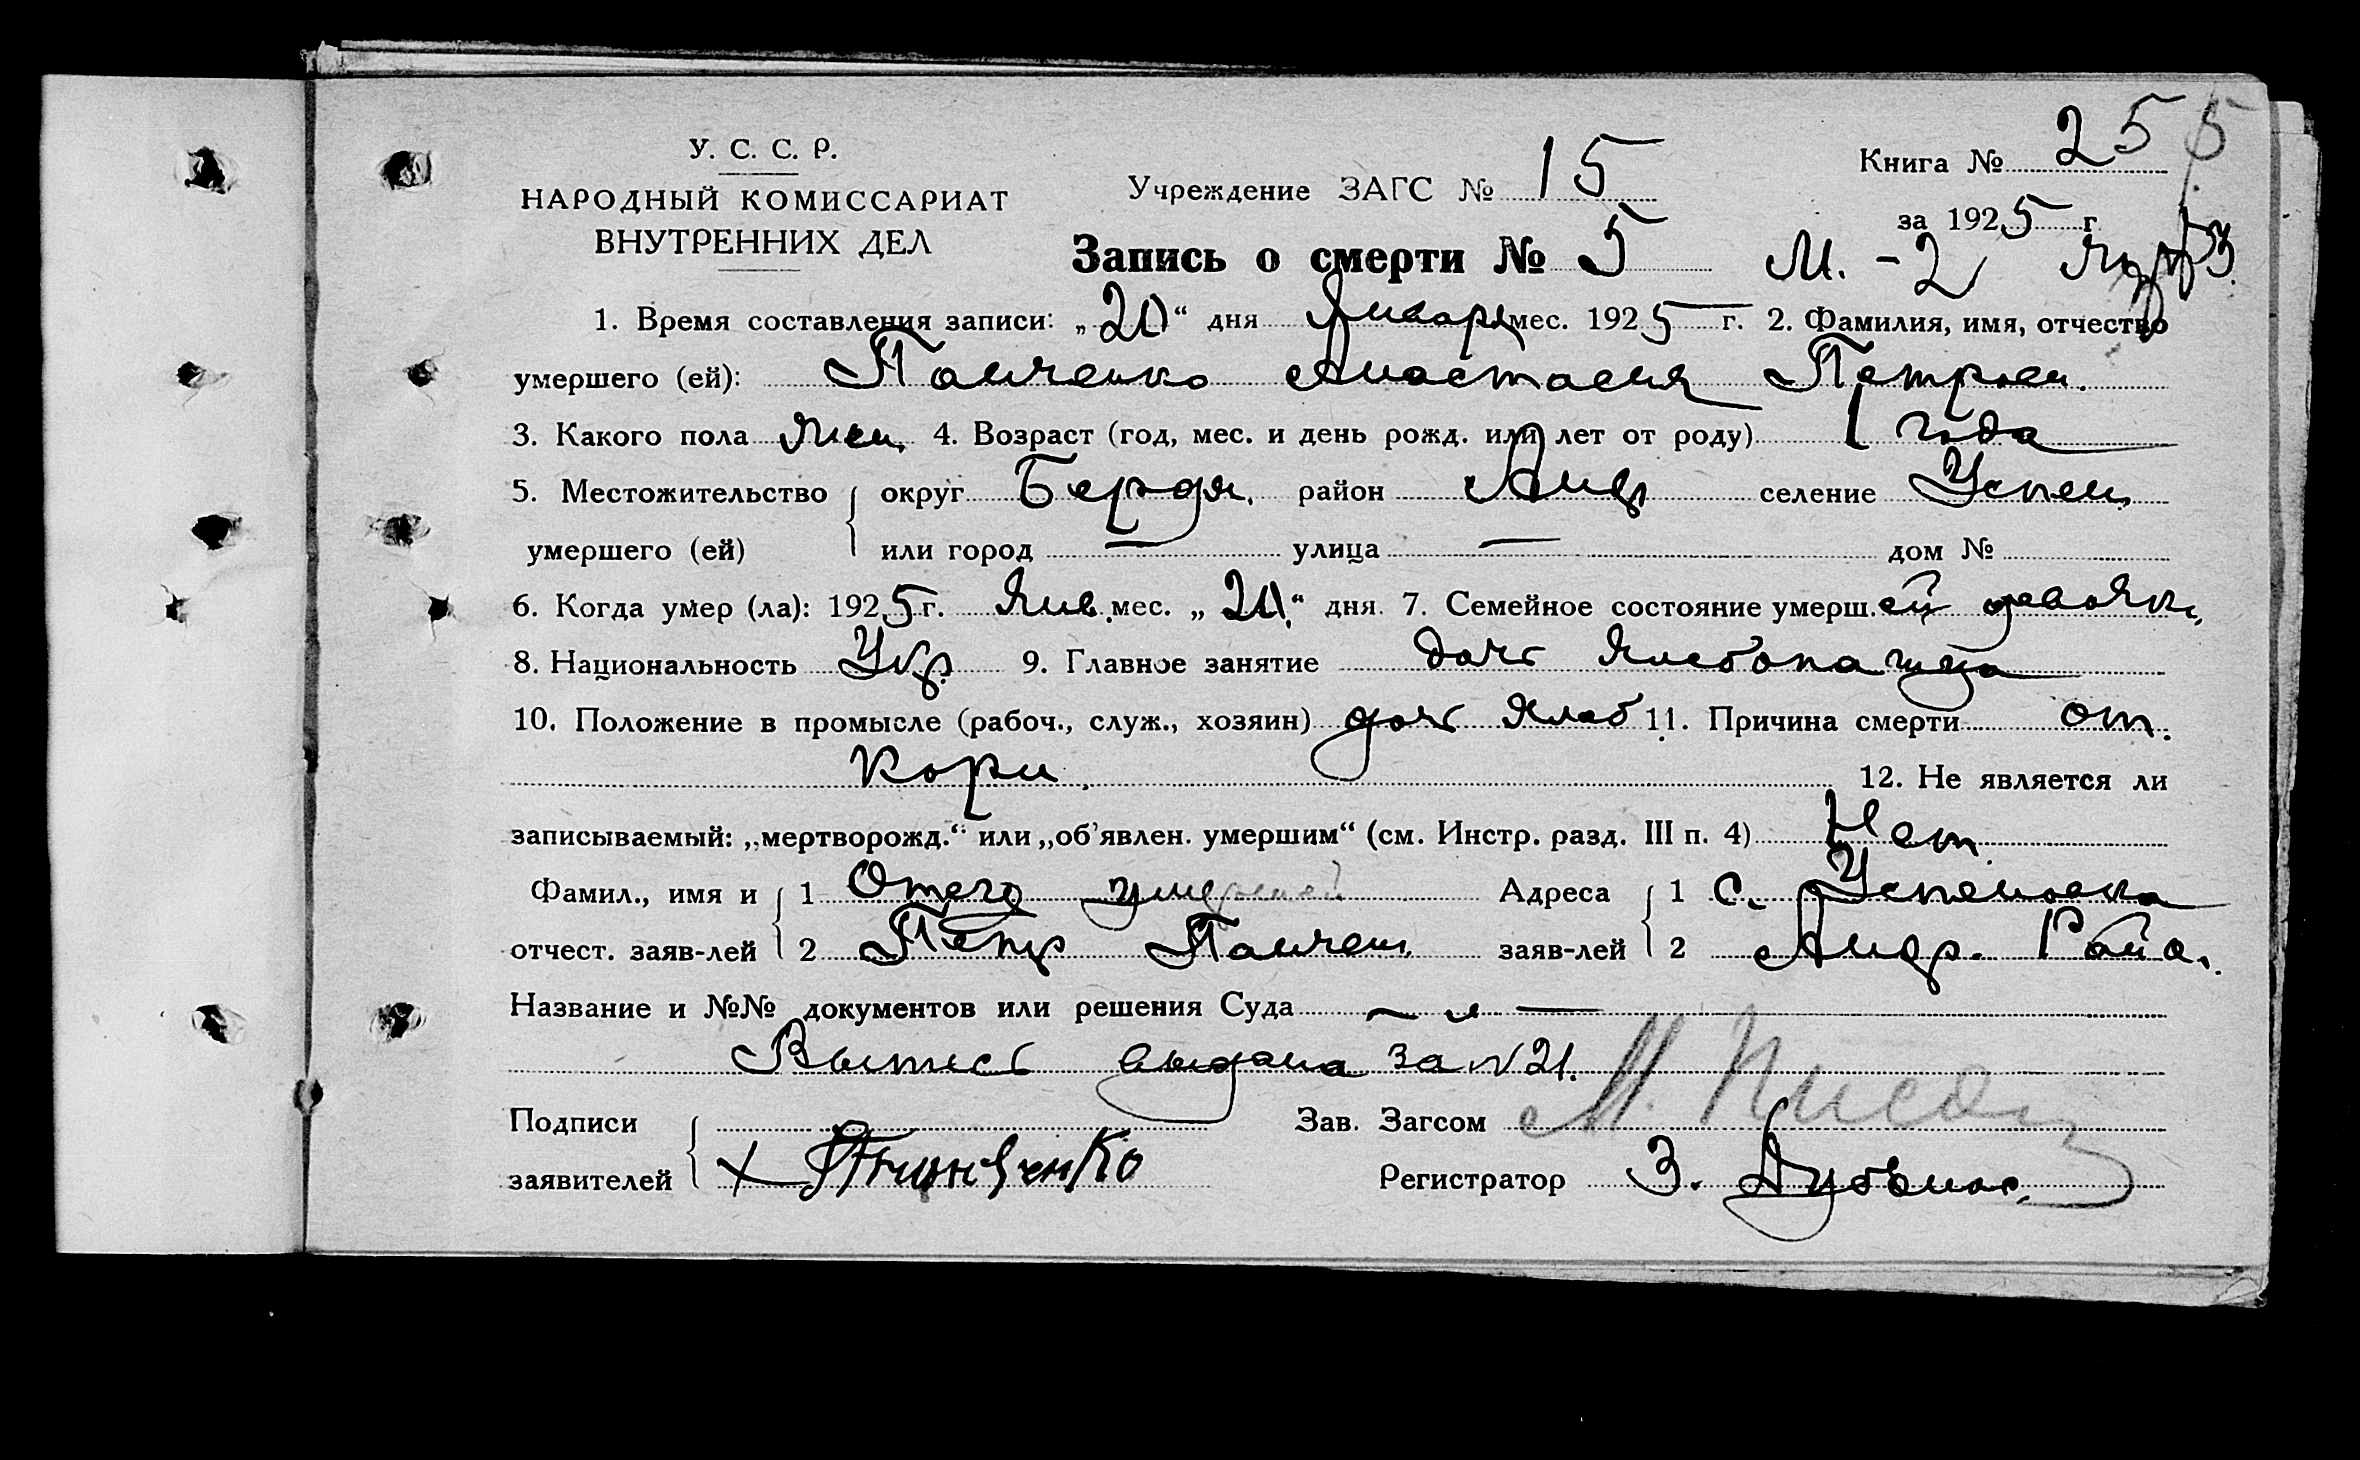 У. С. С. Р.
НАРОДНЫЙ КОМИССАРИАТ
ВНУТРЕННИХ ДЕЛ
Учреждение ЗАГС № 15
Книга № 25 5
за 1925 г.
Запись о смерти № 5 М. - 2
1. Время составления записи: „20“ дня Января мес. 1925 г. 2. Фамилия, имя, отчество
умершего (ей): Панченко Анастасия Петров.
3. Какого пола жен. 4. Возраст (год, мес. и день рожд. или лет от роду) 1 года
5. Местожительство округ Бердя. район Андр селение Успен.
умершего (ей) или город — улица — дом №
6. Когда умер (ла): 1925 г. Янв. мес. „20“ дня. 7. Семейное состояние умерш. ей девочк.
8. Национальность Укр. 9. Главное занятие дочь хлебопашца
10. Положение в промысле (рабоч., служ., хозяин) дочь хлеб 11. Причина смерти от
кори. 12. Не является ли
записываемый: „мертворожд.“ или „об’явлен. умершим“ (см. Инстр. разд. III п. 4) Нет.
Фамил., имя и 1 Отец умершей Адреса 1 с. Успеновка
отчест. заяв-лей 2 Петр Панчен. заяв-лей 2 Андр. Райо.
Название и №№ документов или решения Суда
Выпись выдана за № 21.
Подписи Зав. Загсом М.
заявителей Регистратор З.